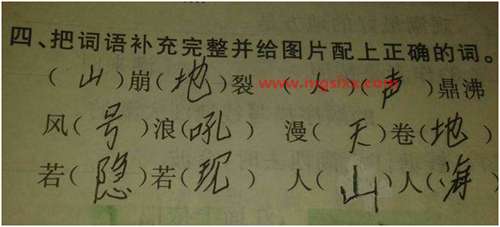 四、把词语补充完整并给图片配上正确的词。
（山）崩（地）裂 （人）（声）鼎沸
www.mgslxx.com
风（号）浪（吼） 漫（天）卷（地）
若（隐）若（现） 人（山）人（海）